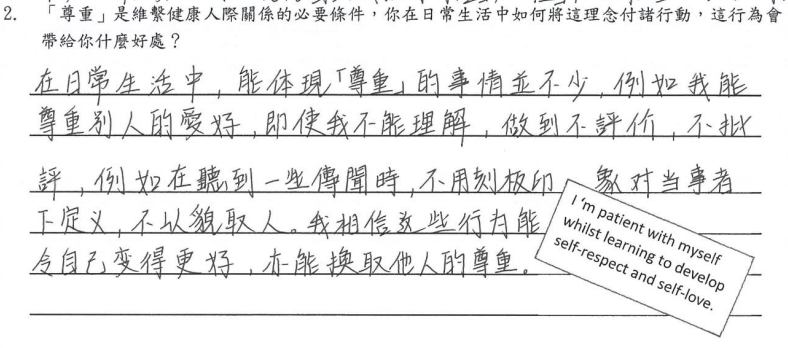 2. 「尊重」是維繫健康人際關係的必要條件，你在日常生活中如何將這理念付諸行動，這行為會
帶給你什麼好處？
在日常生活中，能体現「尊重」的事情並不少，例如我能
尊重別人的愛好，即使我不能理解，做到不評价，不批
評，例如在聽到一些傳聞時，不用刻板印象对当事者
下定义，不以貌取人。我相信这些行为能
令自己变得更好，亦能換取他人的尊重。
I 'm patient with myself
whilst learning to develop
self-respect and self-love.